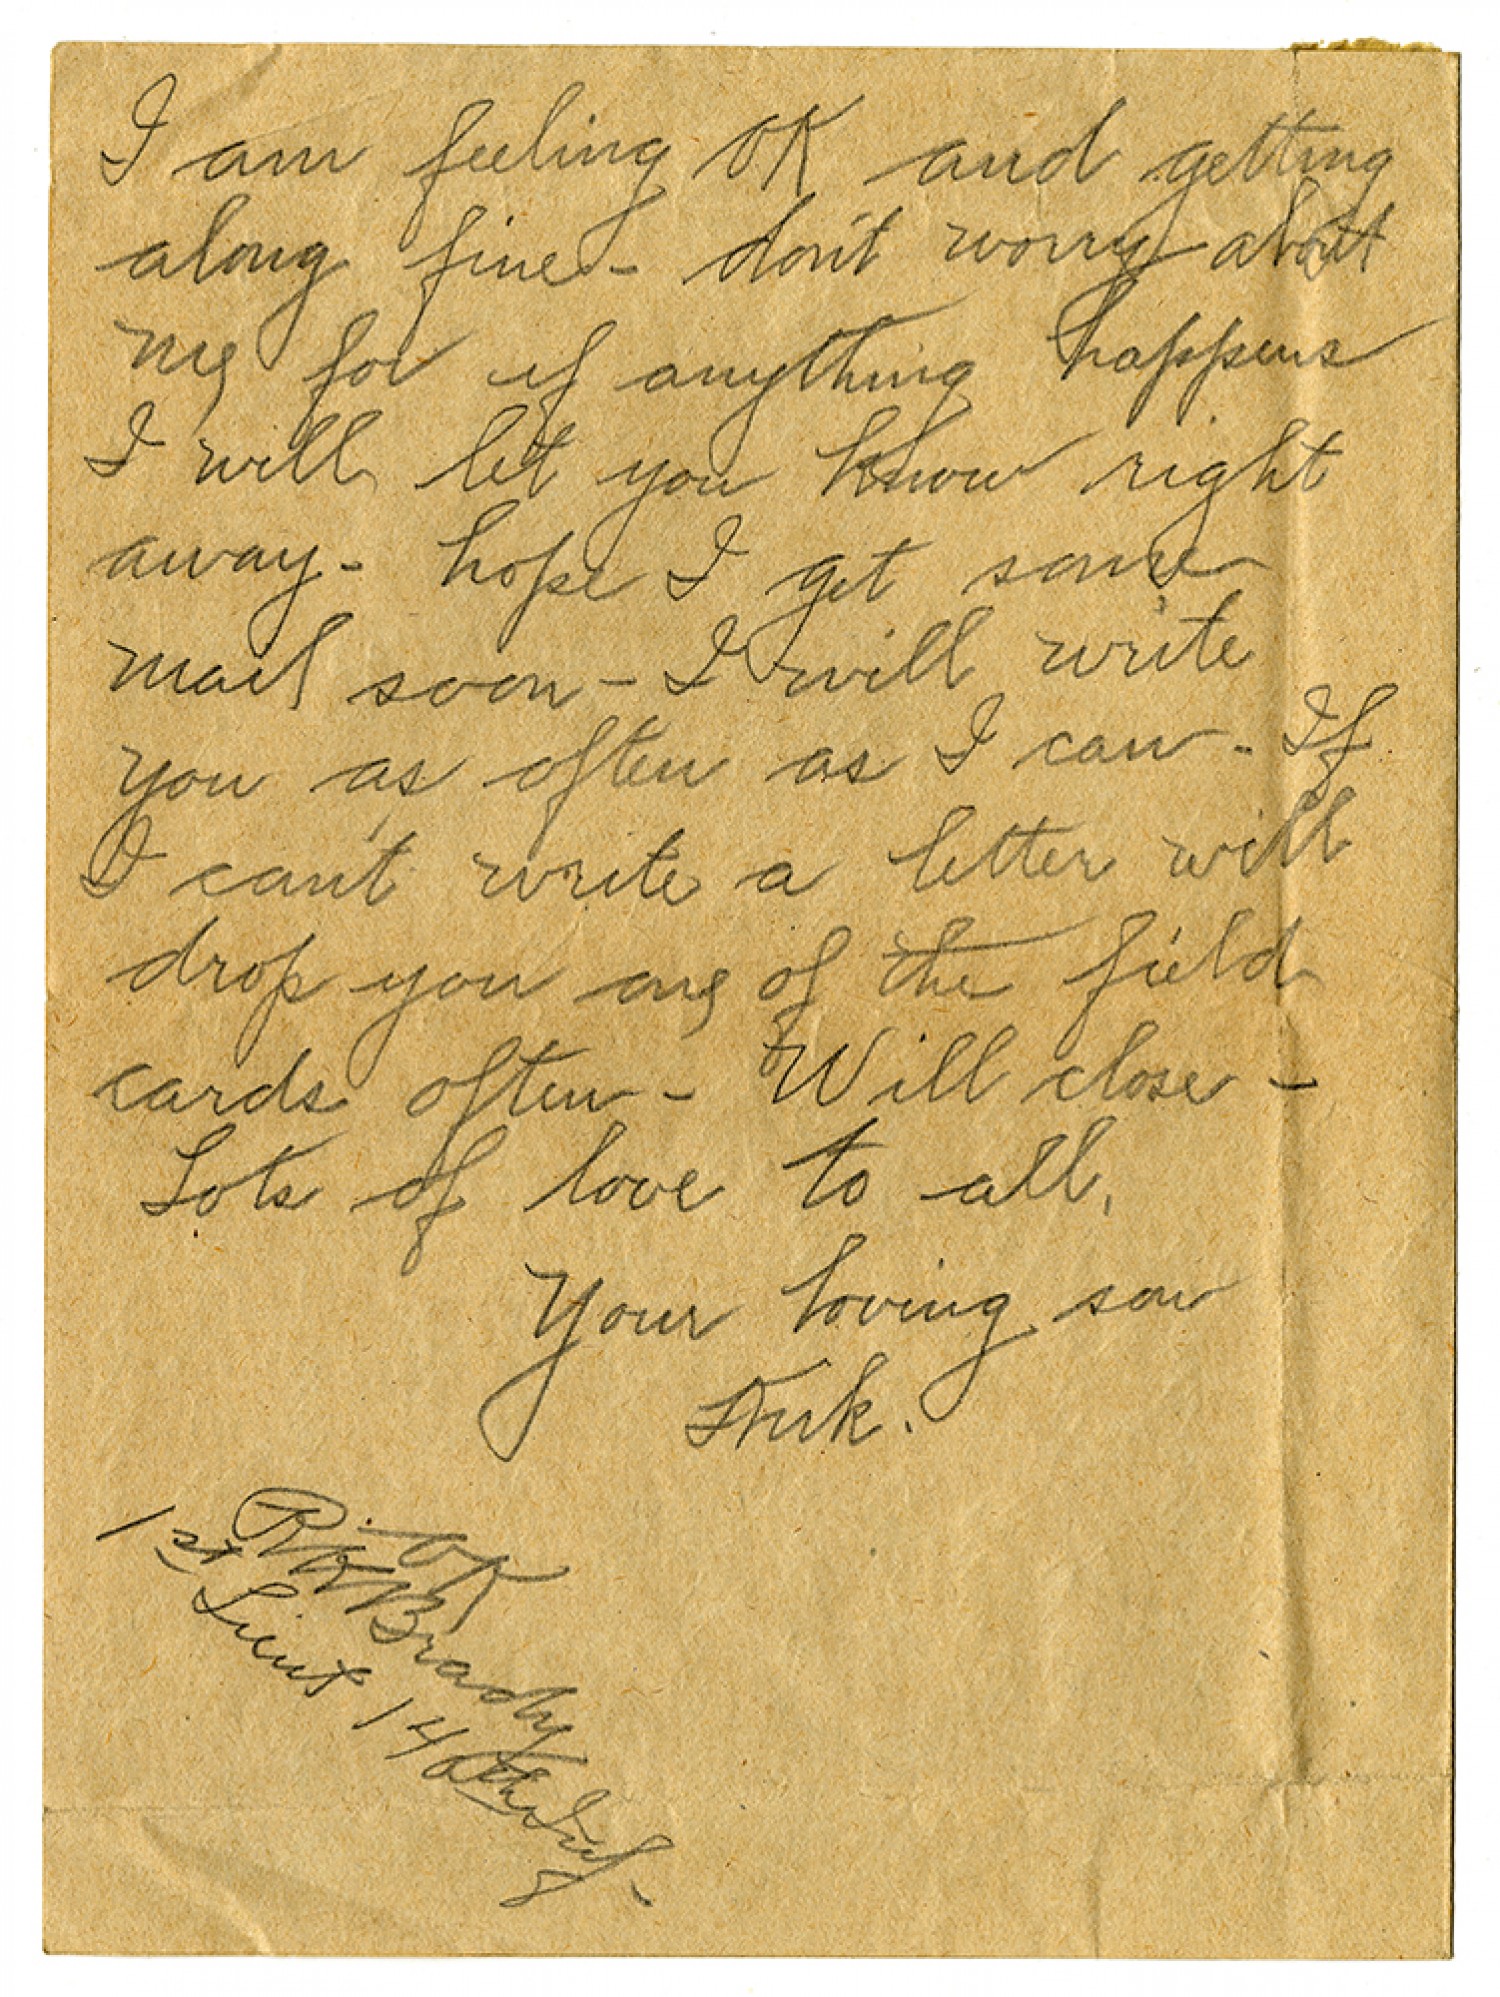 I am feeling OK and getting
along fine - don't worry about
me for if anything happens
I will let you know right
away - hope I get some
mail soon - I will write
you as often as I can - If
I can't write a letter will
drop you one of the field
cards often - Will close -
Lots of love to all,
Your loving son
OK
Brady
1st Lieut 140th Inf-